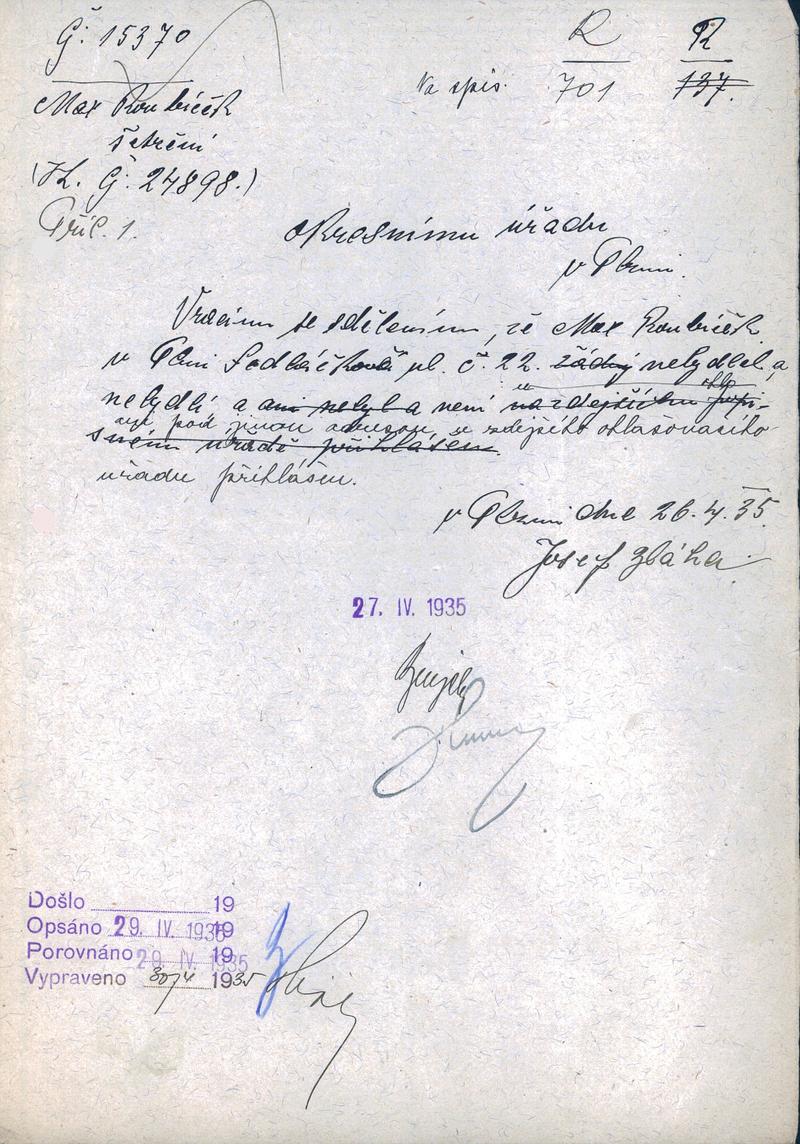 Č: 15370
Max Roubíček
šetření
(K. Č: 24898.)
Příl. 1.
Na spis.
R
701
R
137.
Okresnímu úřadu
v Plzni.
Vracím se sdělením, že Max Roubíček
v Plzni Sedláčkově ul. č. 22. žádný nebydlel a
nebydlí a ani nebyl a není u na zdejším
ani pod jinou adresou u zdejšího ohlašovacího
sném úřadě přihlášen
úřadu přihlášen.
v Plzni dne 26.4.35.
Josef Bláha
27. IV. 1935
Došlo 19
Opsáno 29. IV. 1935 19
Porovnáno 29 IV. 1935 19
Vypraveno 30/4 1935